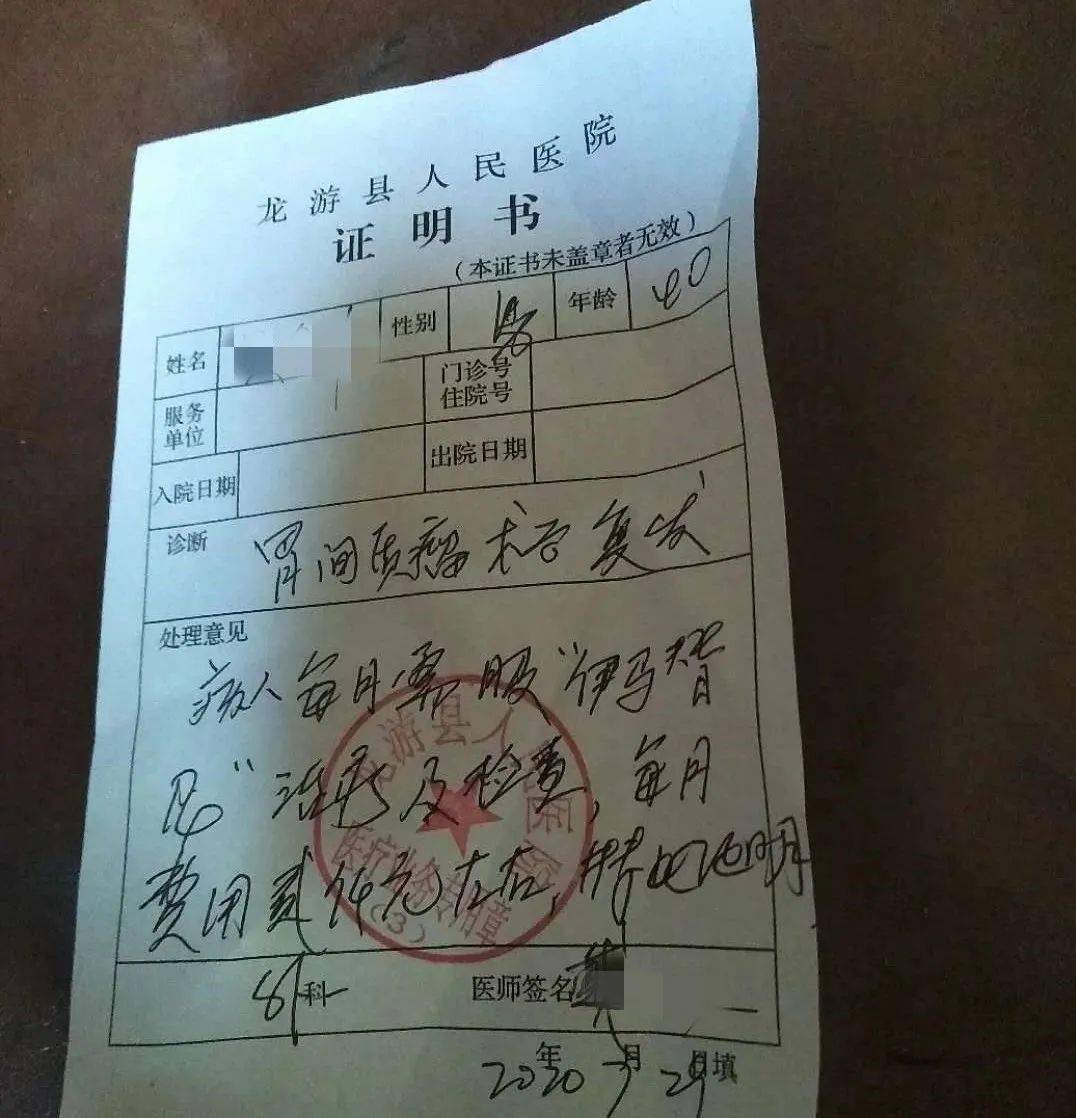 龙游县人民医院
证明书
（本证书未盖章者无效）
姓名 性别 男 年龄 40
服务单位 门诊号 住院号
入院日期 出院日期
诊断 胃间质瘤术后复发
处理意见
病人每月需服“伊马替
尼”治疗及检查，每月
费用贰仟元左右，特此证明
外科 医师签名
2020年7月29日填
龙游县人民医院
医疗业务专用章
（3）